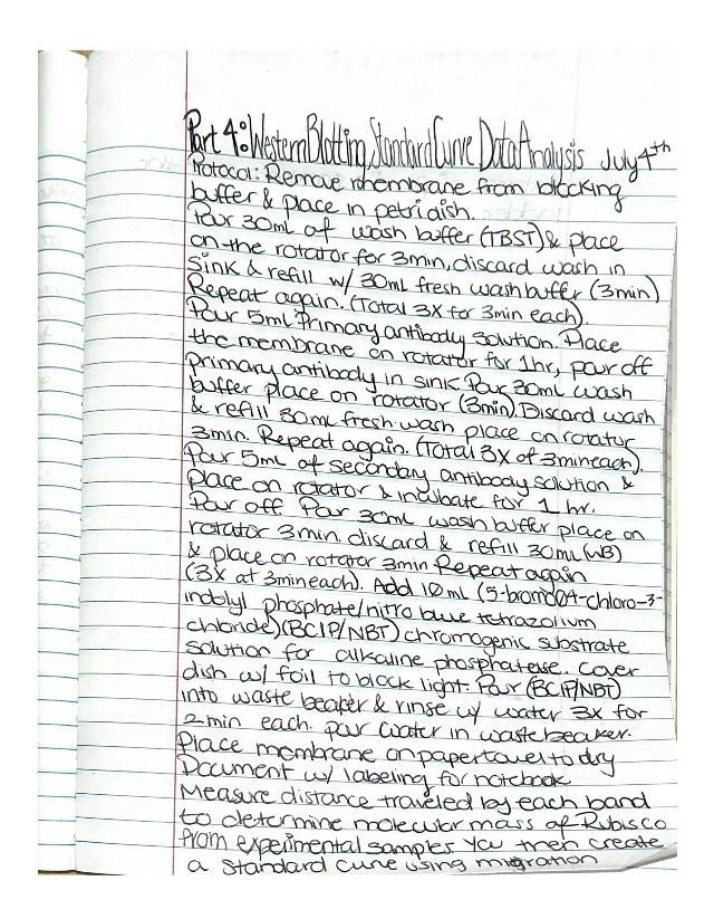 Part 4: Western Blotting, Standard Curve Data Analysis July 4th
Protocol: Remove membrane from blocking
buffer & place in petri dish.
Pour 30mL of wash buffer (TBST) & place
on the rotator for 3min, discard wash in
Sink & refill w/ 30mL fresh wash buffer (3min)
Repeat again. (Total 3X for 3min each).
Pour 5mL Primary antibody solution. Place
the membrane on rotator for 1hr, pour off
primary antibody in sink. Pour 30mL wash
buffer place on rotator (3min). Discard wash
& refill 30mL fresh wash place on rotator
3min. Repeat again. (Total 3X of 3min each).
Pour 5mL of secondary antibody solution &
place on rotator & incubate for 1 hr.
Pour off. Pour 30mL wash buffer place on
rotator 3min. discard & refill 30mL (WB)
& place on rotator 3min Repeat again
(3X at 3min each). Add 10mL (5-bromo-4-chloro-3-
indolyl phosphate/nitro blue tetrazolium
chloride) (BCIP/NBT) chromogenic substrate
solution for alkaline phosphatese. Cover
dish w/ foil to block light. Pour (BCIP/NBT)
into waste beaker & rinse w/ water 3X for
2min each. pour water in waste beaker.
Place membrane on papertowel to dry
Document w/ labeling for notebook
Measure distance traveled by each band
to determine molecular mass of Rubisco
from experimental samples You then create
a standard curve using migration